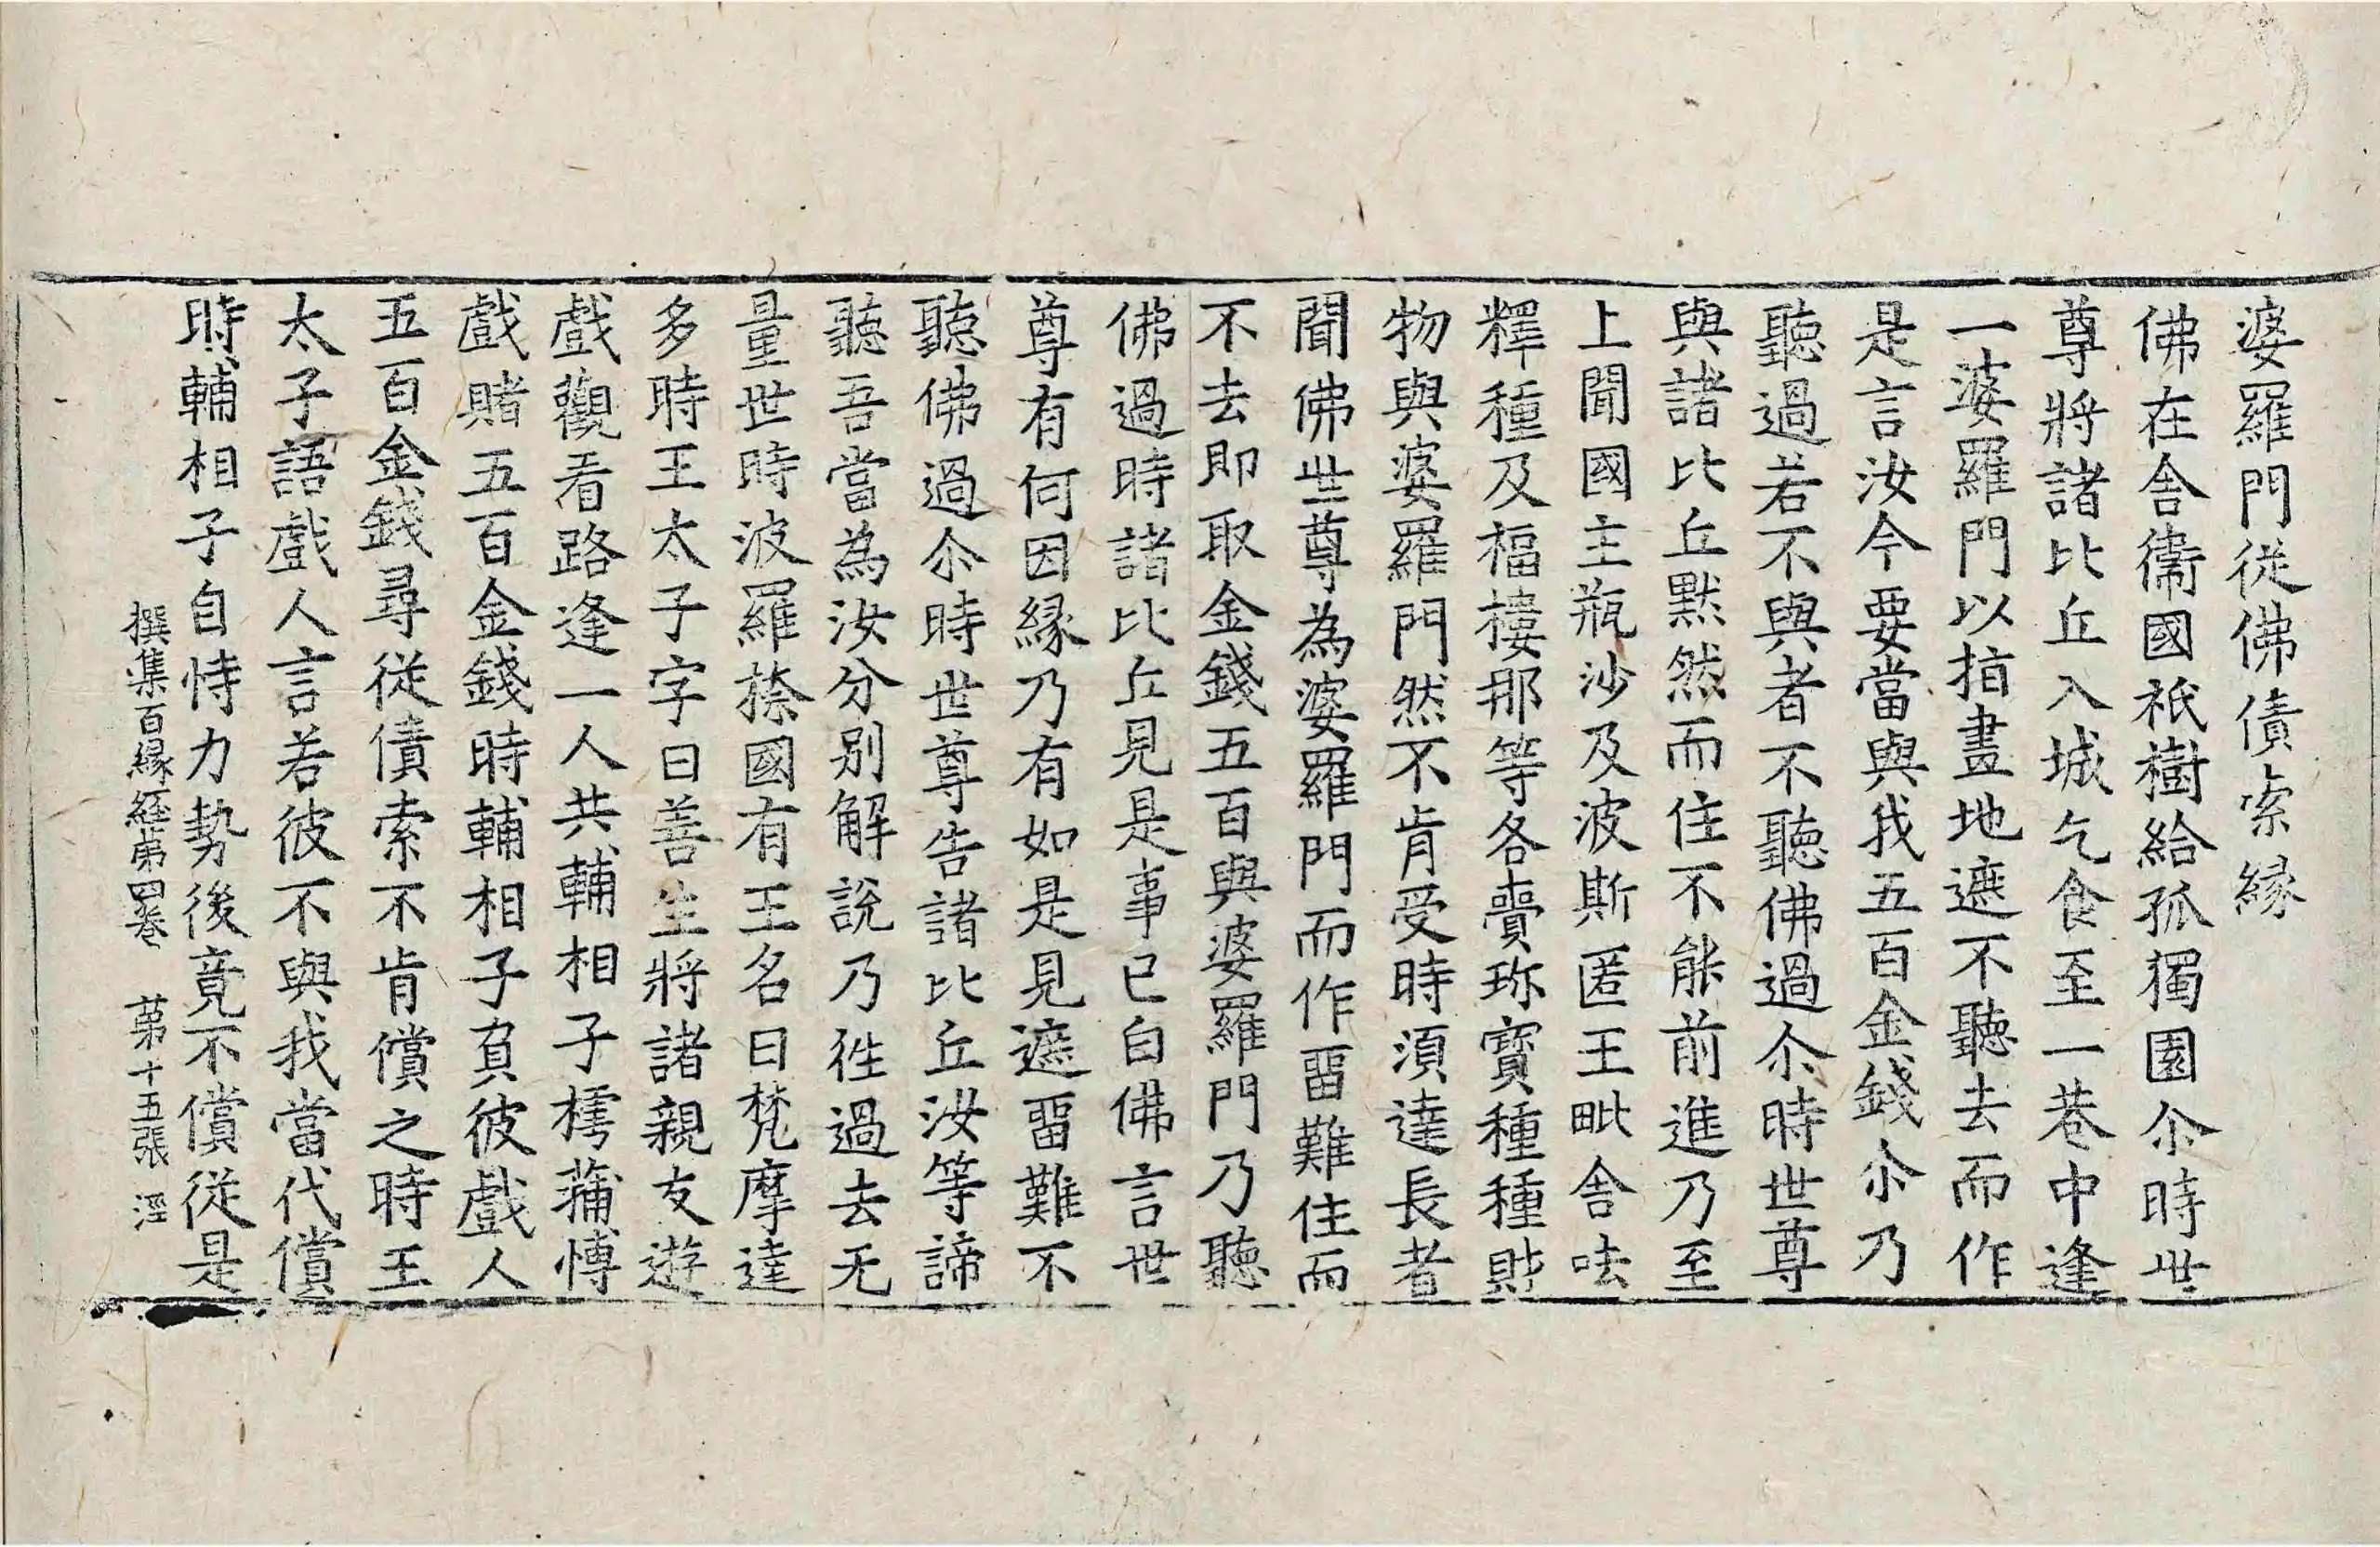 婆羅門從佛債索縁
佛在舎衛國祇樹給孤獨園尒時世
尊將諸比丘入城乞食至一巷中逢
一婆羅門以指畫地遮不聽去而作
是言汝今要當與我五百金錢尒乃
聽過若不與者不聽佛過尒時世尊
與諸比丘黙然而住不能前進乃至
上聞國主瓶沙及波斯匿王毗舎呿
釋種及福樓那等各賷珎寶種種財
物與婆羅門然不肯受時湏達長者
聞佛世尊為婆羅門而作畱難住而
不去即取金錢五百與婆羅門乃聽
佛過時諸比丘見是事已白佛言世
尊有何因縁乃有如是見遮畱難不
聽佛過尒時世尊告諸比丘汝等諦
聽吾當為汝分別解說乃徃過去无
量世時波羅㮈國有王名曰梵摩達
多時王太子字曰善生將諸親友遊
戲觀看路逢一人共輔相子樗蒱博
戲賭五百金錢時輔相子負彼戲人
五百金錢尋從債索不肯償之時王
太子語戲人言若彼不與我當代償
時輔相子自恃力勢後竟不償從是
撰集百縁経第四巻 第十五張 涇